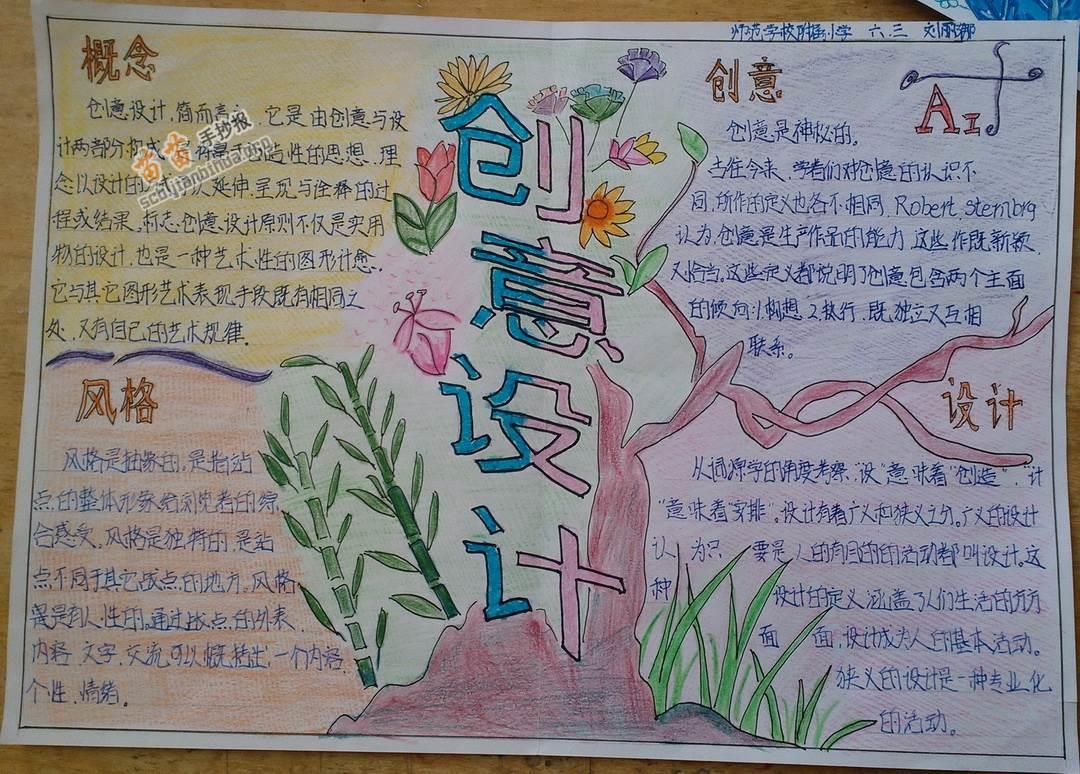 师范学校附属小学 六.三
概念
创意设计,简而言之,它是由创意与设
计两部分构成
性的思想、理
念以设计的 延伸、呈现与诠释的过
程或结果。标志创意设计原则不仅是实用
物的设计,也是一种艺术性的图形计意.
它与其它图形艺术表现手段既有相同之
处,又有自己的艺术规律.
苗苗手抄报
创意设计
创意
AI
创意是神秘的。
古往今来,学者们对创意的认识不
同,所作的定义也各不相同,Robert,sternbrg
认为,创意是生产作品的能力,这些作既新颖
又恰当。这些定义都说明了创意包含两个主面
的倾向:1构想 2执行,既独立又互相
联系。
风格
风格是抽象的。是指站
点的整体形象给浏览者的综
合感受。风格是独特的,是站
点不同于其它战点的地方。风格
是 人性的。通过战点的外表,
内容、文字、交流可以概括出一个内容、
个性、情绪。
设计
从词源学的角度考察,"设"意味着"创造","计
"意味着"安排"。设计有着广义和狭义之分。广义的设计
认为只要是人的有目的的活动都叫设计。这
种设计的定义涵盖了人们生活的方方
面面,设计成为人的基本活动。
狭义的设计是一种专业化
的活动。